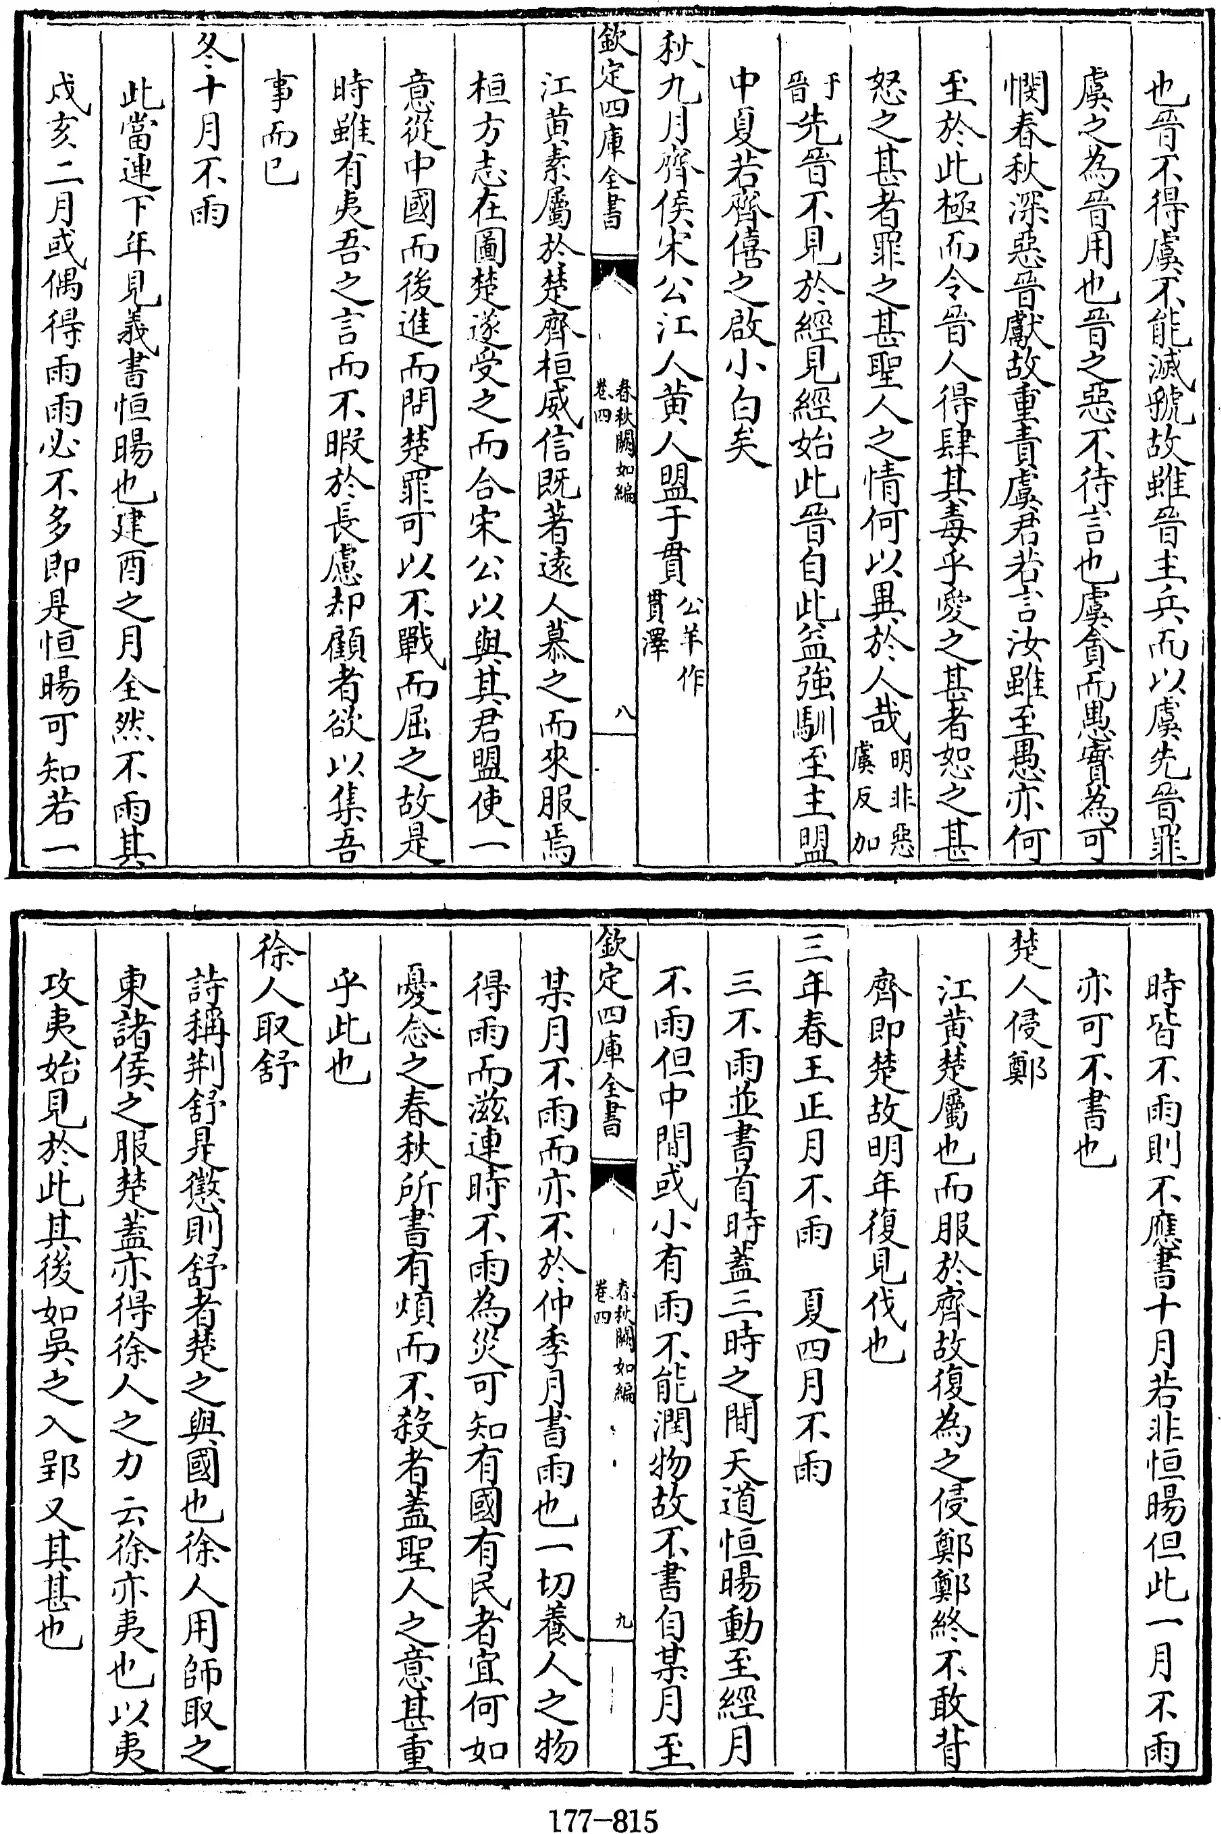 也晉不得虞不能滅虢故雖晉主兵而以虞先晉罪
虞之為晉用也晉之惡不待言也虞貪而愚實為可
憫春秋深惡晉獻故重責虞君若言汝雖至愚亦何
至於此極而令晉人得肆其毒乎愛之甚者恕之甚
怒之甚者罪之甚聖人之情何以異於人哉明非惡虞反加
于晉先晉不見於經見經始此晉自此益強馴至主盟
中夏若齊僖之啟小白矣
秋九月齊侯宋公江人黃人盟于貫公羊作貫澤
欽定四庫全書
春秋闕如編
卷四
八
江黃素屬於楚齊桓威信既著遠人慕之而來服焉
桓方志在圖楚遂受之而合宋公以與其君盟使一
意從中國而後進而問楚罪可以不戰而屈之故是
時雖有夷吾之言而不暇於長慮却顧者欲以集吾
事而已
冬十月不雨
此當連下年見義書恒暘也建酉之月全然不雨其
戌亥二月或偶得雨雨必不多即是恒暘可知若一
時皆不雨則不應書十月若非恒暘但此一月不雨
亦可不書也
楚人侵鄭
江黃楚屬也而服於齊故復為之侵鄭鄭終不敢背
齊即楚故明年復見伐也
三年春王正月不雨 夏四月不雨
三不雨並書首時蓋三時之間天道恒暘動至經月
不雨但中間或小有雨不能潤物故不書自某月至
欽定四庫全書
春秋闕如編
卷四
九
某月不雨而亦不於仲季月書雨也一切養人之物
得雨而滋連時不雨為災可知有國有民者宜何如
憂念之春秋所書有煩而不殺者蓋聖人之意甚重
乎此也
徐人取舒
詩稱荆舒是懲則舒者楚之與國也徐人用師取之
東諸侯之服楚蓋亦得徐人之力云徐亦夷也以夷
攻夷始見於此其後如吳之入郢又其甚也
177-815